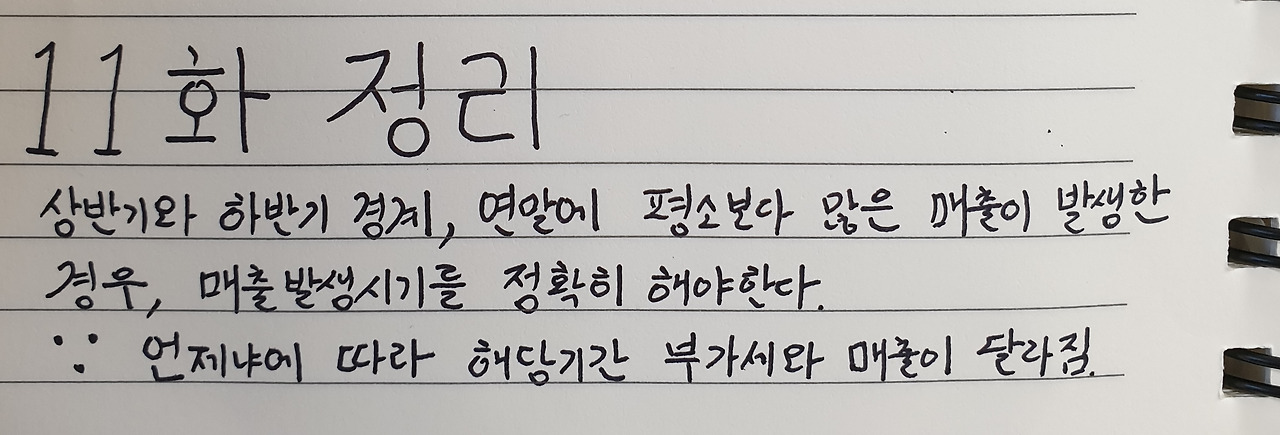 11화 정리
상반기와 하반기 경계, 연말에 평소보다 많은 매출이 발생한
경우, 매출발생시기를 정확히 해야한다.
∵ 언제냐에 따라 해당기간 부가세와 매출이 달라짐.